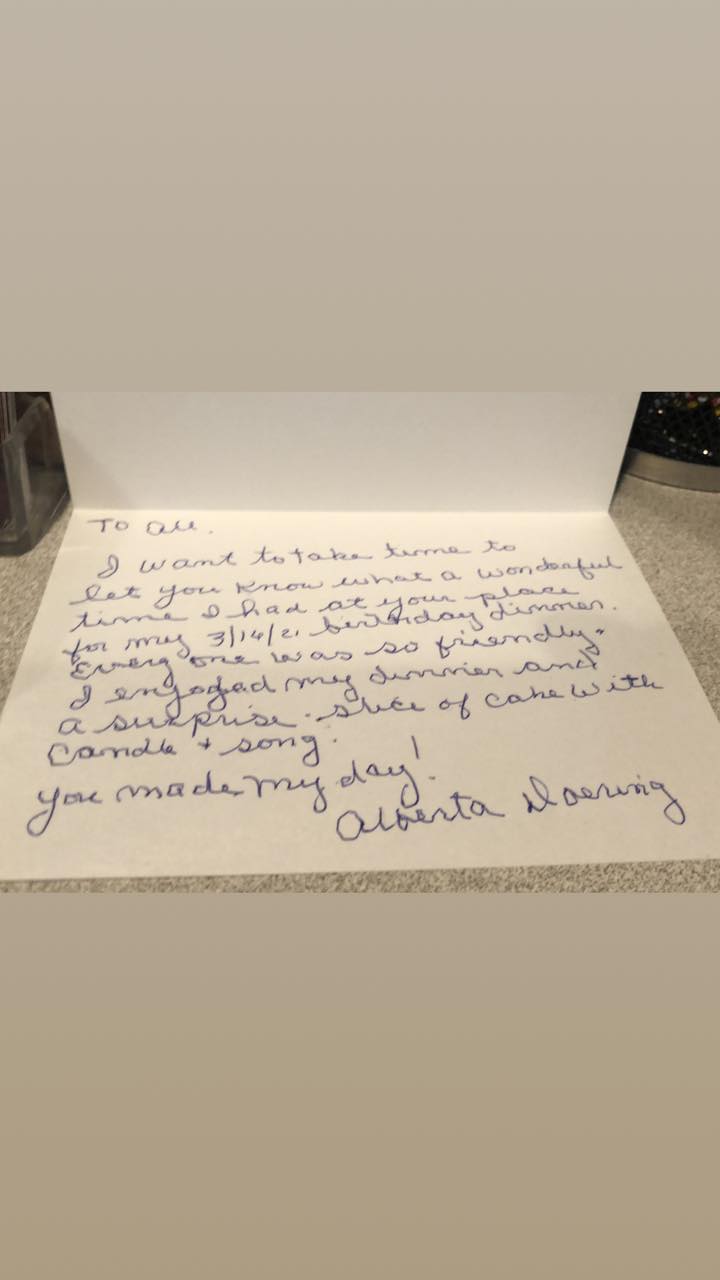 To all.
I want to take time to
let you know what a wonderful
time I had at your place
for my 3/14/21 birthday dinner.
Every one was so friendly.
I enjoyed my dinner and
a surprise slice of cake with
Candle + song.
You made my day!
Alberta Doering